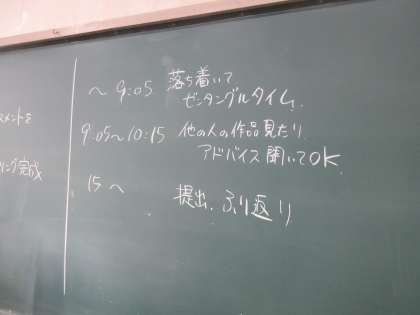 メントを
リング完成
～9:05 落ち着いて
ゼンタングルタイム.
9:05～10:15 他の人の作品見たり
アドバイス聞いてOK.
15～ 提出、ふり返り